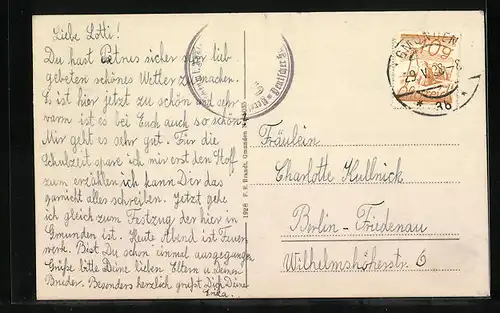 Liebe Lotti!
Du hast Petrus sicher sehr lieb
gebeten schönes Wetter zu machen.
Es ist hier jetzt zu schön und sehr
warm ist es bei Euch auch so schön?
Mir geht es sehr gut. Für die
Schulzeit spare ich mir erst den Stoff
zum erzählen ich kann Dir das
garnicht alles schreiben. Jetzt gehe
ich gleich zum Festzug der hier in
Gmunden ist. Heute Abend ist Feuer
werk. Bist Du schon einmal ausgegangen
Grüße bitte Deine lieben Eltern u. Deinen
Bruder. Besonders herzlich grüßt Dich Deine
Erika.
Deutscher
1928 P. E. Brandt, Gmunden
GMUNDEN
29.V.28
* 3b *
Fräulein
Charlotte Kullnick
Berlin-Friedenau
Wilhelmshöherstr. 6